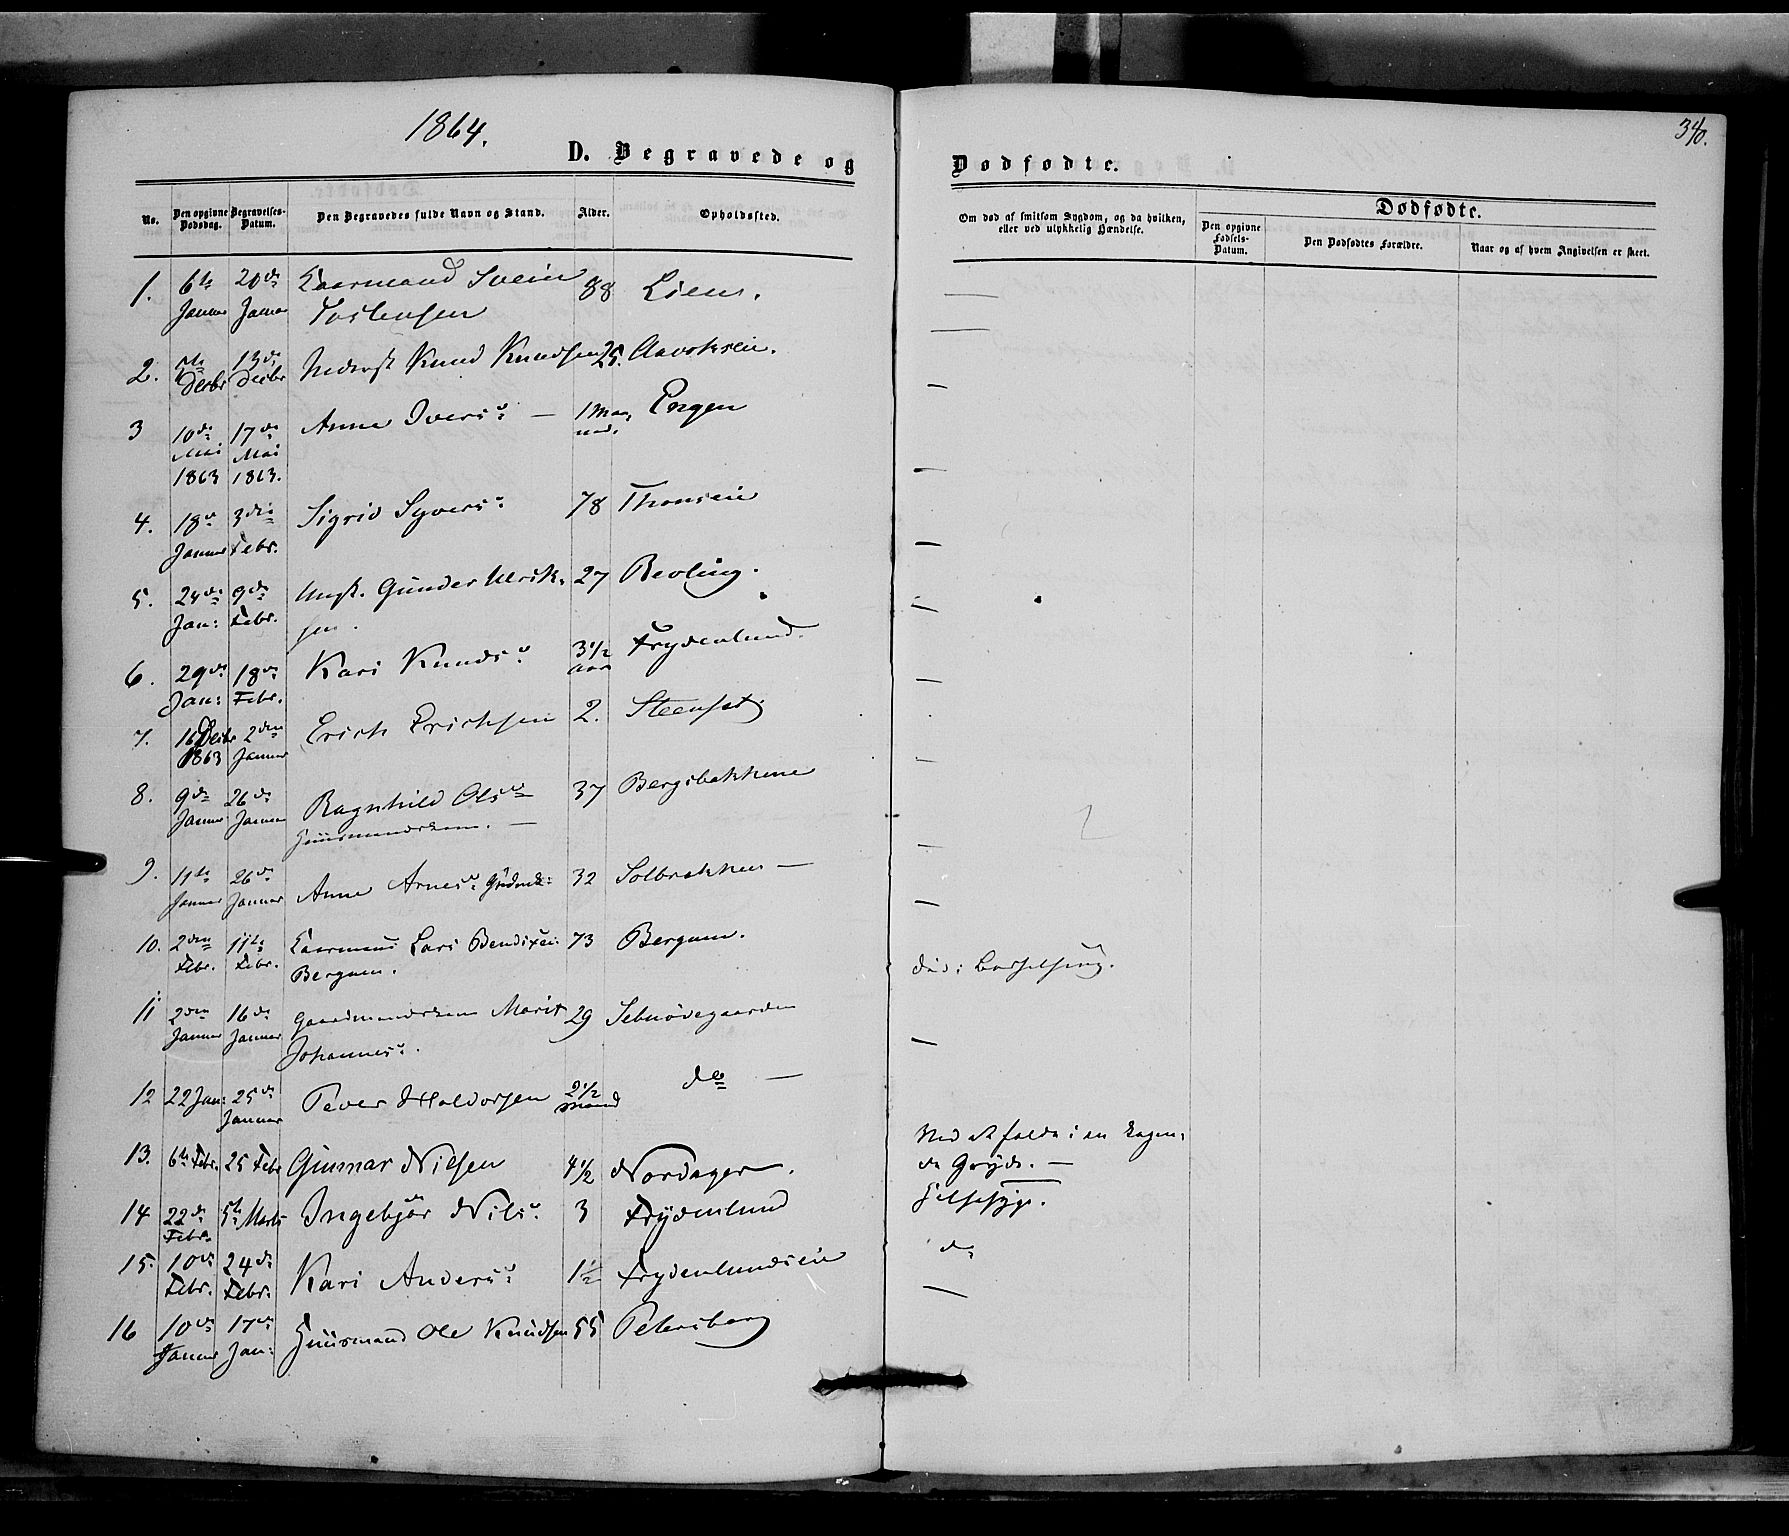 1864.
340.
D. Begravede og Dødfødte.
No. Den opgivne Dødsdag. Begravelses-Datum. Den Begravedes fulde Navn og Stand. Alder. Opholdssted.
Om død af smitsom Sygdom, og da hvilken, eller ved ulykkelig Hændelse.
Dødfødte.
Den opgivne Fødsels-Datum. Den Dødfødtes Forældre. Naar og af hvem Angivelsen er skeet.
1. 6te Januar 20de Januar Svein 88 Lien. —
Tostensen
2. Decbr 13de Decbr Knud Knudsen 25. —
3 10de Mai 1863 17de Mai 1863. Anne Ivers. — 1 Maaned. Engen —
4. 18de Januar 3die Febr. Sigrid Syvers. 78 Thonseie —
5. 24de Jan: 9de Febr. Ungk. Gunder Ulriksen. 27 Revling. —
6. 29de Jan: 18de Febr. Kari Knuds. 3 1/2 Aar Frydenlund. —
7. 16 Decbr 1863 2den Januar Erich Erichsen 2. Steenset. —
8. 9de Januar 26de Januar Ragnhild Ols. 37 Bergsbakkene —
Huusmandskone. —
9. 11te Januar 26de Januar Anne Arnes. 32 Solbrekken — —
10. 2den Febr. 11te Febr. Lars Bendixen 73 Bergum. —
Bergum.
11 2den Januar 16de Januar Gaardmandskone Marit 29 død i Barselseng.
Johannes.
12 22 Jan: 25de Januar Peder Haldorsen 2 1/2 Maaned do — —
13. 6te Febr. 25 Febr Gunnar Nilsen 4 1/2 Nordager. Ved at falde i en kogende Gryde. —
14 22de Febr. 5te Marts Ingebjør Nils. 3 Frydenlund Halssyge.
15. 10de Febr. 24de Febr. Kari Anders. 1 1/2 Frydenlundseie do
16 10de Januar 17de Jan: Huusmand Ole Knudsen 55 Petersborg —